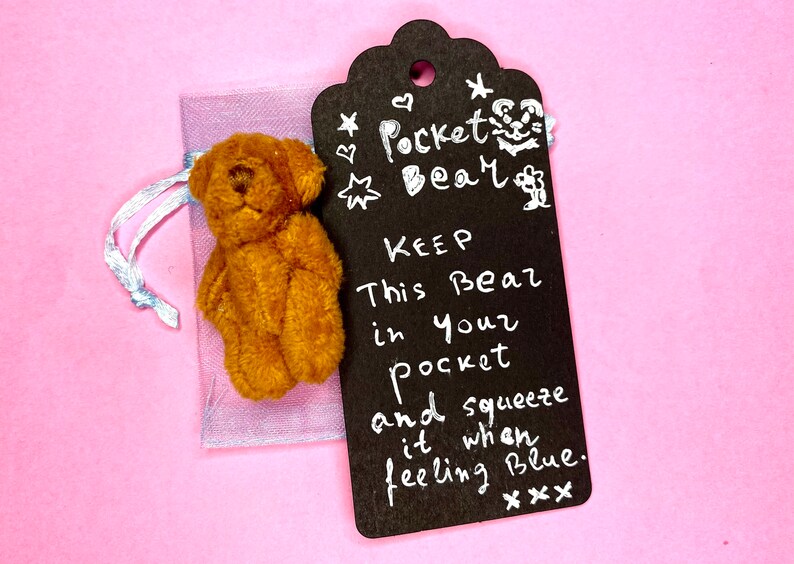 Pocket
Bear
KEEP
This Bear
in your
pocket
and squeeze
it when
feeling Blue.
xxx